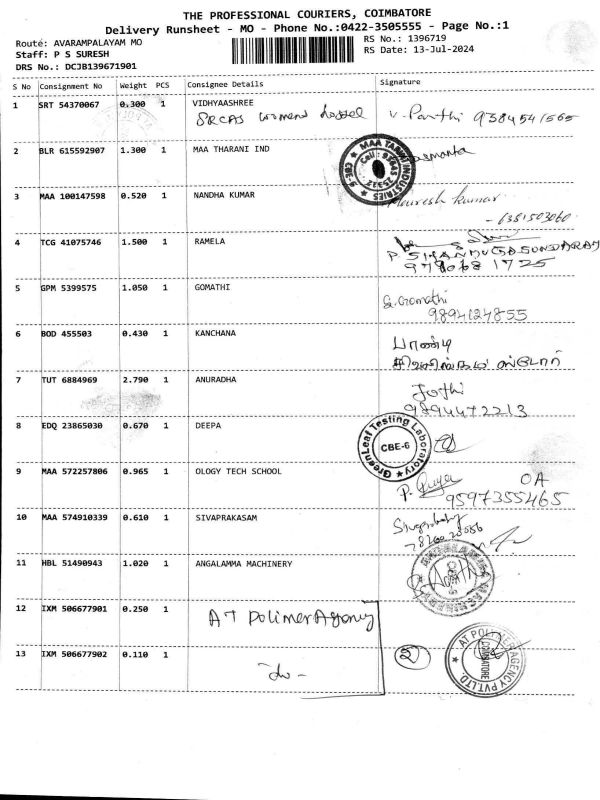 THE PROFESSIONAL COURIERS, COIMBATORE
Delivery Runsheet - MO - Phone No.:0422-3505555 - Page No.:1
Route: AVARAMPALAYAM MO
RS No.: 1396719
Staff: P S SURESH
RS Date: 13-Jul-2024
DRS No.: DCJB139671901
S No Consignment No Weight PCS Consignee Details Signature
1 SRT 54370067 0.300 1 VIDHYAASHREE
SRCAS womens hostel
9384541565
2 BLR 615592907 1.300 1 MAA THARANI IND
MAA TARINI INDUSTRIES
3 MAA 100147598 0.520 1 NANDHA KUMAR
kumar
4 TCG 41075746 1.500 1 RAMELA
P. SHANMUGASUNDARAM
5 GPM 5399575 1.050 1 GOMATHI
G. Gomathi
9894124855
6 BOD 455503 0.430 1 KANCHANA
பாண்டி
7 TUT 6884969 2.790 1 ANURADHA
Jothi
9894472213
8 EDQ 23865030 0.670 1 DEEPA
GreenLeaf Testing Laboratory
CBE-6
9 MAA 572257806 0.965 1 OLOGY TECH SCHOOL
OA
9597355465
10 MAA 574910339 0.610 1 SIVAPRAKASAM
11 HBL 51490943 1.020 1 ANGALAMMA MACHINERY
12 IXM 506677901 0.250 1
AT Polimer Agency
13 IXM 506677902 0.110 1
-do-
2
AT POLYMER AGENCY PVT.LTD
COIMBATORE